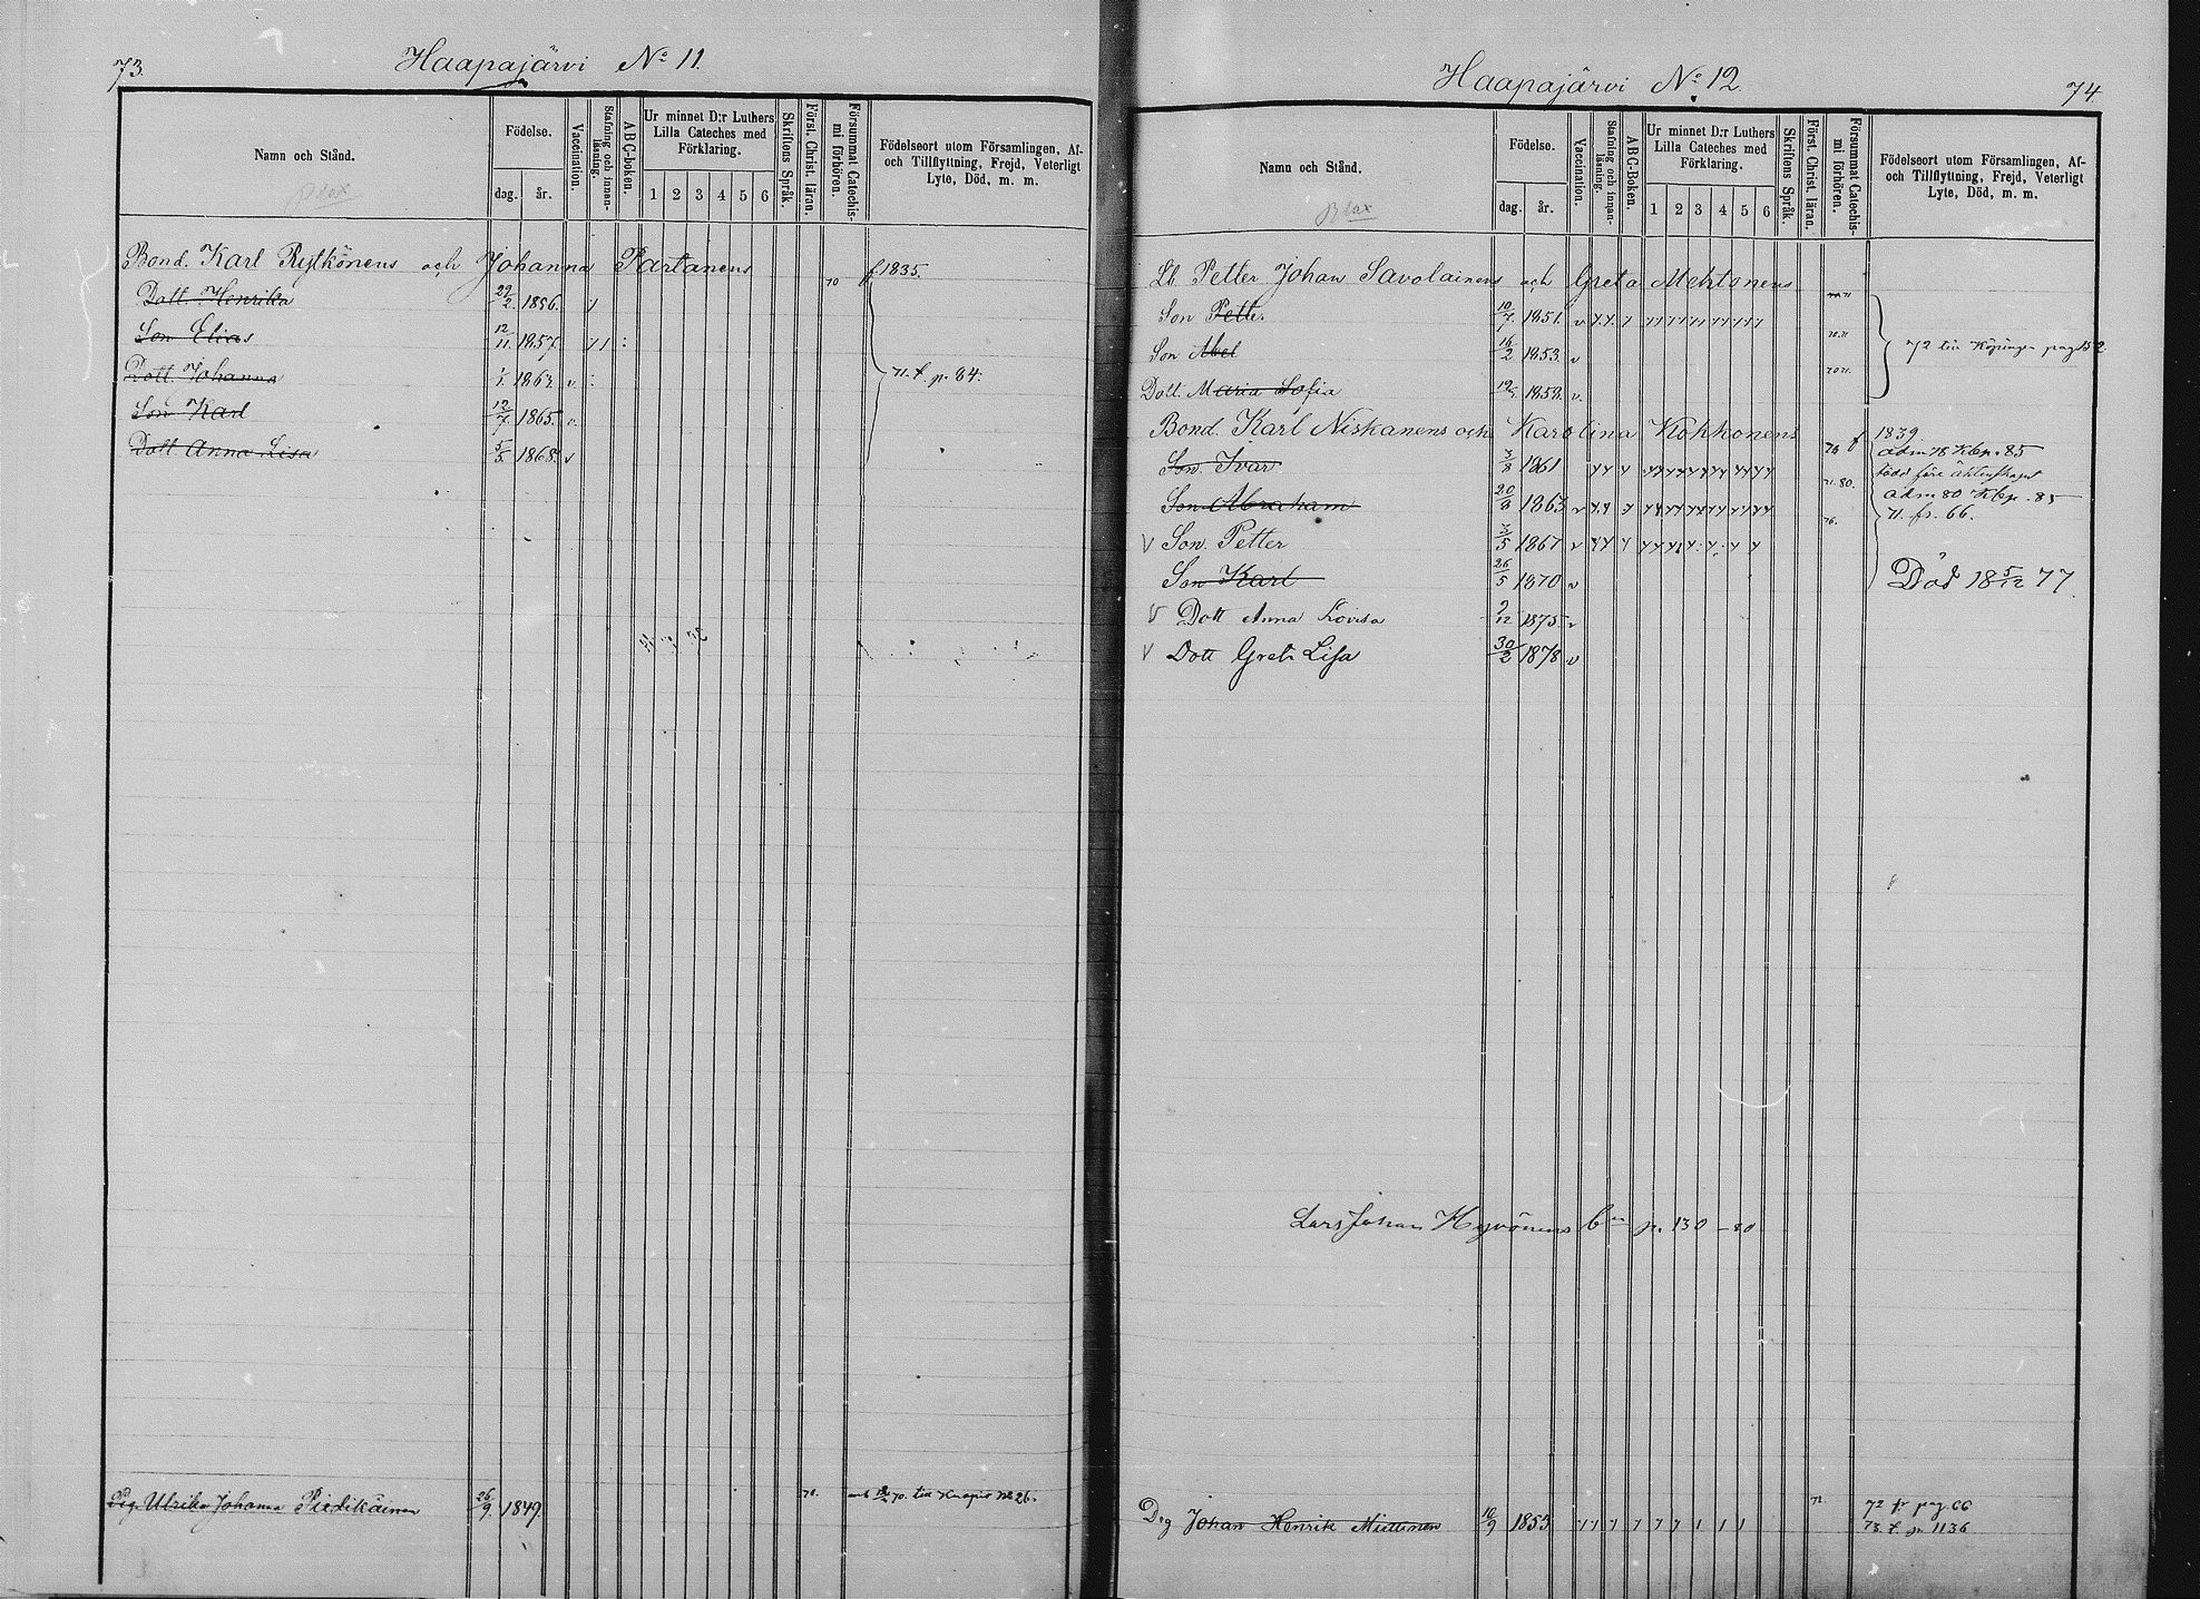 73.
Haapajärvi No 11.
Namn och Stånd.
Födelse.
dag. år.
Vaccination.
Stafning och innan-läsning.
ABC-boken.
Ur minnet D:r Luthers
Lilla Cateches med
Förklaring.
1 2 3 4 5 6
Skriftens Språk.
Först. Christ. läran.
Försummat Catechis-mi förhören.
Födelseort utom Församlingen, Af-
och Tillflyttning, Frejd, Veterligt
Lyte, Död, m. m.
Bond. Karl Rytkönens och Johanna Partanens 70 f. 1835.
Dott. Henrika 2. 1856.
Son Elias 12/11. 1857.
Dott. Johanna 1/1. 1862 v 71. t. p. 84.
Son Karl 12/7. 1865. v.
Dott Anna Lisa 5/5. 1868. v
Pig. Ulrika Johanna Piedikäinen 26/9. 1849. 70. till Kuopio No 26.
Haapajärvi No 12.
74.
Namn och Stånd.
Födelse.
dag. år.
Vaccination.
Stafning och innan-läsning.
ABC-Boken.
Ur minnet D:r Luthers
Lilla Cateches med
Förklaring.
1 2 3 4 5 6
Skriftens Språk.
Först. Christ. läran.
Försummat Catechis-mi förhören.
Födelseort utom Församlingen, Af-
och Tillflyttning, Frejd, Veterligt
Lyte, Död, m. m.
Lb Petter Johan Savolainens och Greta Mehtonens
Son Petter 10/7. 1851. v
Son Abel 16/2 1853 v 72 till Köpingen pag 152
Dott. Maria Sofia 1858. v.
Bond. Karl Niskanens och Karolina Kokkonens 1839.
Son. Ivar 3/8 1861 adm 78 Kbp. 85
Son Abraham 20/8 1863 v adm 80 Kbp. 85
71. fr. 66.
V Son. Petter 3/5 1867 v
Son Karl 26/5 1870 v Död 18 5/12 77.
V Dott Anna Lovisa 9/12 1875 v
V Dott Greta Lisa 30/2 1878 v
Lars Johan Hyvönens p. 130 - 80
Drg Johan Henrik Miettinen 10/9 1853 72 72 fr pag. 66
73. t. p. 1136